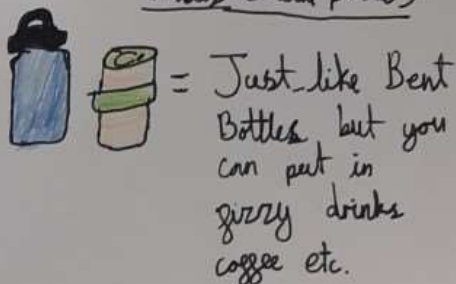 = Just like Bent
Bottles but you
can put in
fizzy drinks
coffee etc.